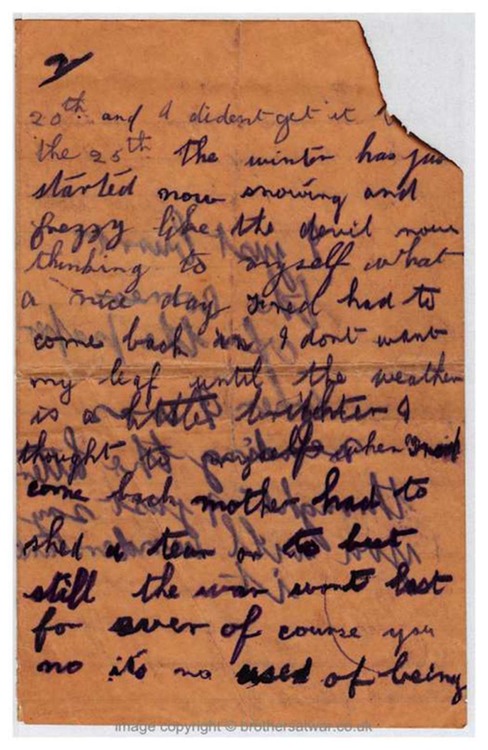 2
20th and I dident get it
the 25th the winter has jus
started now snowing and
frezzy like the devil now
thinking to myself what
a nice day Fred had to
come back in I dont want
my leaf until the weather
is a little brighter I
thought to myself when Fred
come back mother had to
shed a tear or to but
still the war wont last
for ever of course you
no its no used of being
image copyright © brothersatwar.co.uk